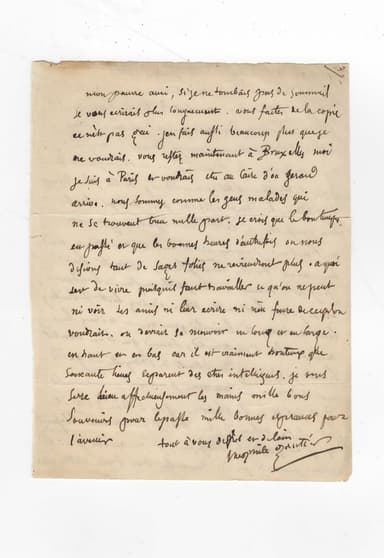 mon pauvre ami, si je ne tombais pas de sommeil
je vous ecrirais plus longuement. vous faites de la copie
ce n'est pas gai. j'en fais aussi beaucoup plus que je
ne voudrais. vous restez maintenant à Bruxelles moi
je suis à Paris et voudrais etre au Caire d'ou Gerard
arrive. nous sommes comme les gens malades qui
ne se trouvent bien nulle part. je crois que le bon temps
est passé et que les bonnes heures d'autrefois ou nous
disions tant de sages folies ne reviendront plus. a quoi
sert de vivre puisqu'il faut travailler et qu'on ne peut
ni voir ses amis ni leur ecrire ni rien faire de ce qu'on
voudrait. on devrait se mouvoir en long et en large
en haut et en bas car il est vraiment honteux que
soixante lieues separent des etres intelligens. je vous
serre bien affectueusement les mains mille bons
souvenirs pour le passé mille bonnes esperances pour
l'avenir
tout à vous de près et de loin
theophile Gautier